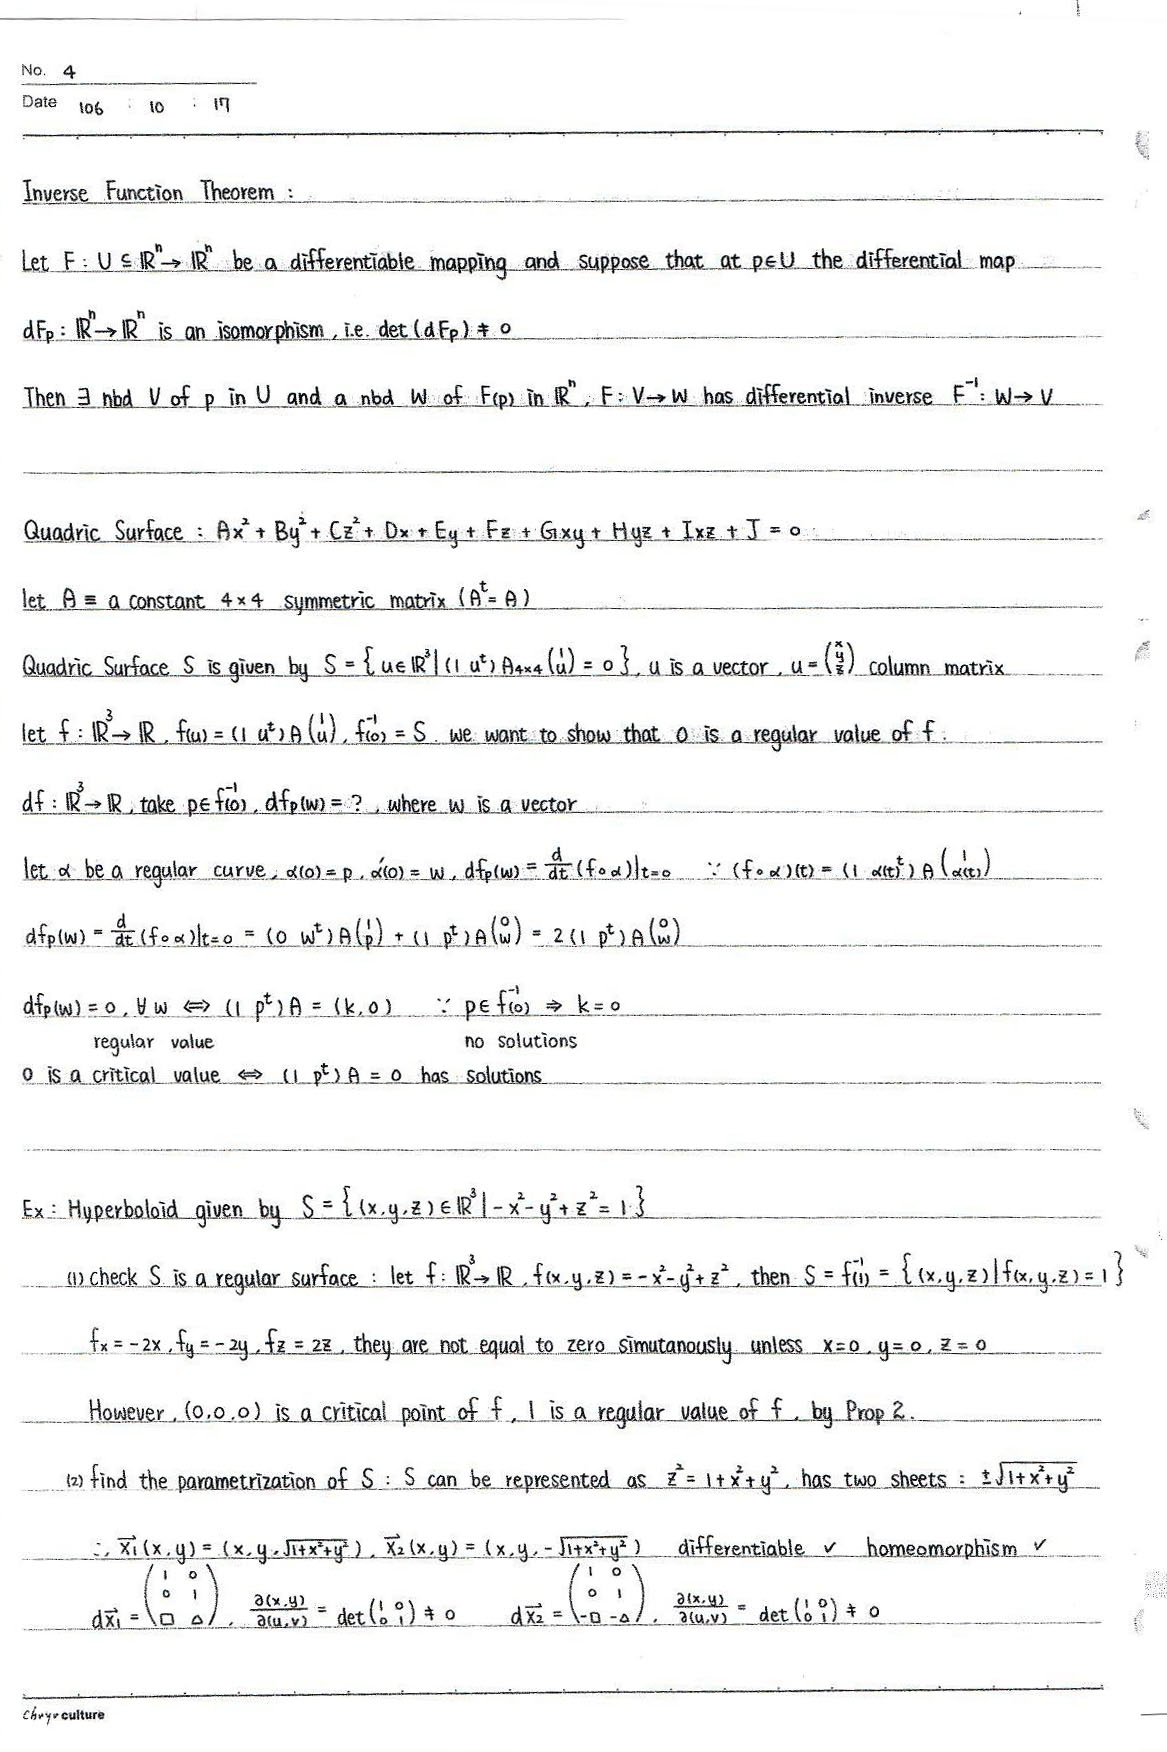 No. 4
Date 106 : 10 : 17
Inverse Function Theorem :
Let F : U ⊆ ℝⁿ → ℝⁿ be a differentiable mapping and suppose that at p∈U the differential map
dFp : ℝⁿ → ℝⁿ is an isomorphism, i.e. det (dFp) ≠ 0
Then ∃ nbd V of p in U and a nbd W of F(p) in ℝⁿ, F : V → W has differential inverse F⁻¹ : W → V
Quadric Surface : Ax² + By² + Cz² + Dx + Ey + Fz + Gxy + Hyz + Ixz + J = 0
let A ≡ a constant 4×4 symmetric matrix (Aᵗ = A)
Quadric Surface S is given by S = { u∈ℝ³ | (1 uᵗ) A₄ₓ₄ (1 u) = 0 }, u is a vector, u = (x y z) column matrix
let f : ℝ³ → ℝ, f(u) = (1 uᵗ) A (1 u), f⁻¹(0) = S. we want to show that 0 is a regular value of f.
df : ℝ³ → ℝ, take p∈f⁻¹(0), dfp(w) = ?, where w is a vector
let α be a regular curve, α(0) = p, α′(0) = w, dfp(w) = d/dt (f∘α)|t=0 ∵ (f∘α)(t) = (1 α(t)ᵗ) A (1 α(t))
dfp(w) = d/dt (f∘α)|t=0 = (0 wᵗ) A (1 p) + (1 pᵗ) A (0 w) = 2 (1 pᵗ) A (0 w)
dfp(w) = 0, ∀ w ⇔ (1 pᵗ) A = (k, 0) ∵ p∈f⁻¹(0) ⇒ k = 0
regular value no solutions
0 is a critical value ⇔ (1 pᵗ) A = 0 has solutions
Ex : Hyperboloid given by S = { (x, y, z) ∈ ℝ³ | -x² - y² + z² = 1 }
(1) check S is a regular surface : let f : ℝ³ → ℝ, f(x, y, z) = -x² - y² + z², then S = f⁻¹(1) = { (x, y, z) | f(x, y, z) = 1 }
fx = -2x, fy = -2y, fz = 2z, they are not equal to zero simutanously unless x=0, y=0, z=0
However, (0, 0, 0) is a critical point of f, 1 is a regular value of f, by Prop 2.
(2) find the parametrization of S : S can be represented as z² = 1 + x² + y², has two sheets : ±√(1+x²+y²)
∴ x⃗₁(x, y) = (x, y, √(1+x²+y²)), x⃗₂(x, y) = (x, y, -√(1+x²+y²)) differentiable ✓ homeomorphism ✓
dx⃗₁ = (1 0 0 1 □ △), ∂(x,y)/∂(u,v) = det (1 0 0 1) ≠ 0 dx⃗₂ = (1 0 0 1 -□ -△), ∂(x,y)/∂(u,v) = det (1 0 0 1) ≠ 0
culture